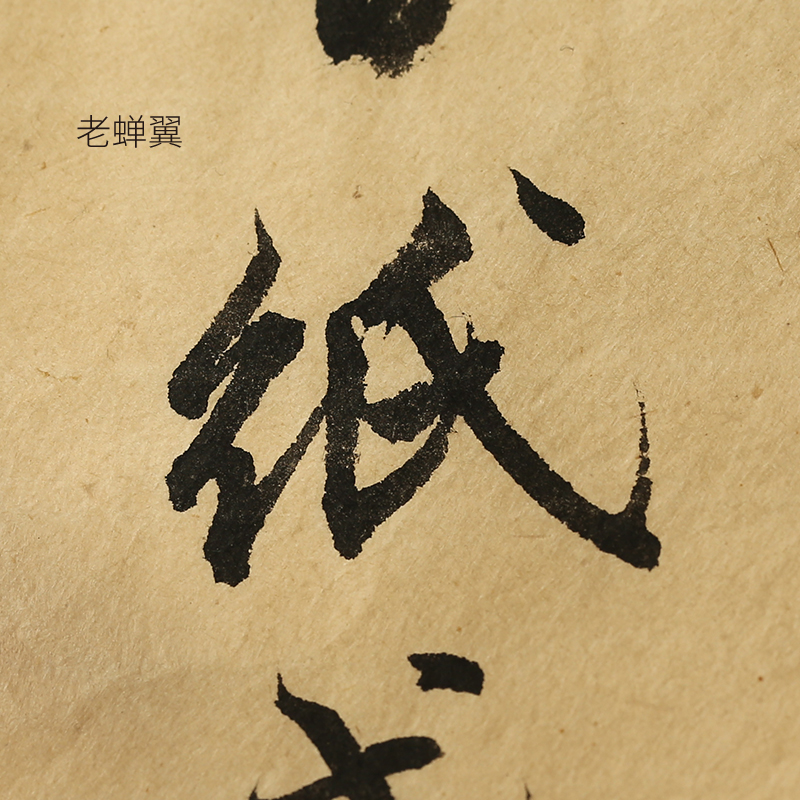 老蝉翼
纸